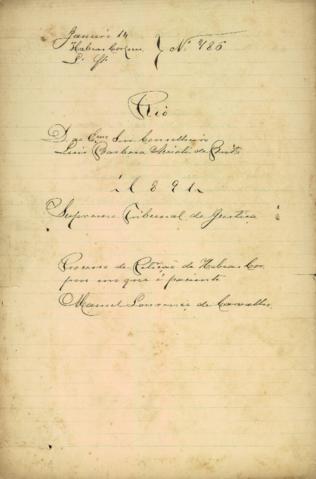 Janeiro 14
Habeas Corpus
N. 786
Rio
D. ao Exmo Snr Conselheiro
Luiz Barbosa Accioli de Brito
1891
Supremo Tribunal de Justiça
Processo de Petição de Habeas Cor
pus em que é paciente
Manuel Lourenço de Carvalho.